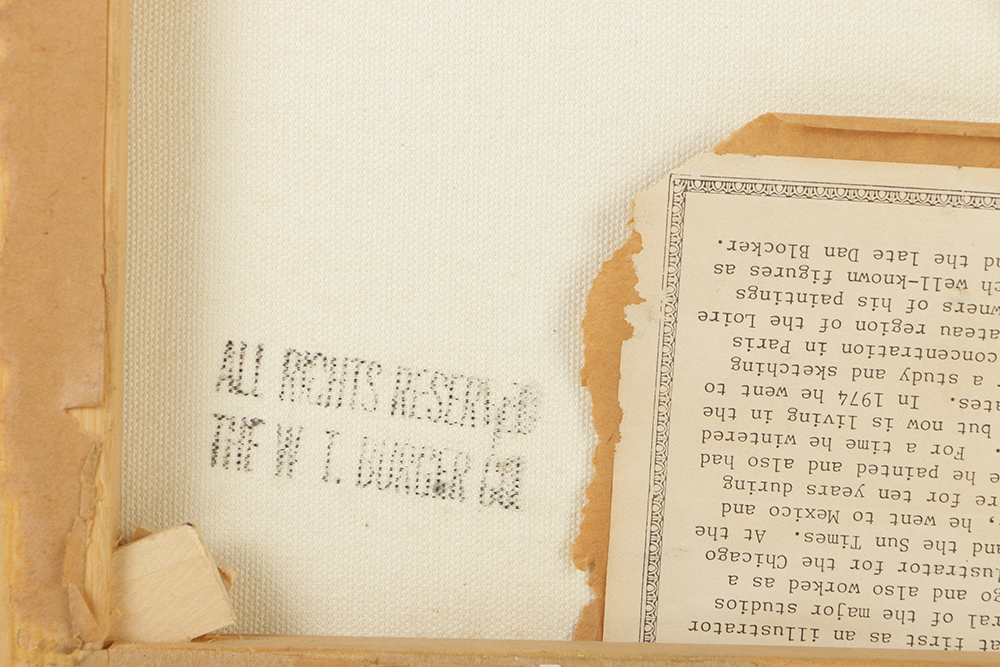 ALL RIGHTS RESERVED
THE W. T. BURGER CO
at first as an illustrator
ral of the major studios
go and also worked as a
lustrator for the Chicago
and the Sun Times. At the
, he went to Mexico and
re for ten years during
e he painted and also had
. For a time he wintered
but now is living in the
ates. In 1974 he went to
a study and sketching
concentration in Paris
ateau region of the Loire
wners of his paintings
ch well-known figures as
nd the late Dan Blocker.